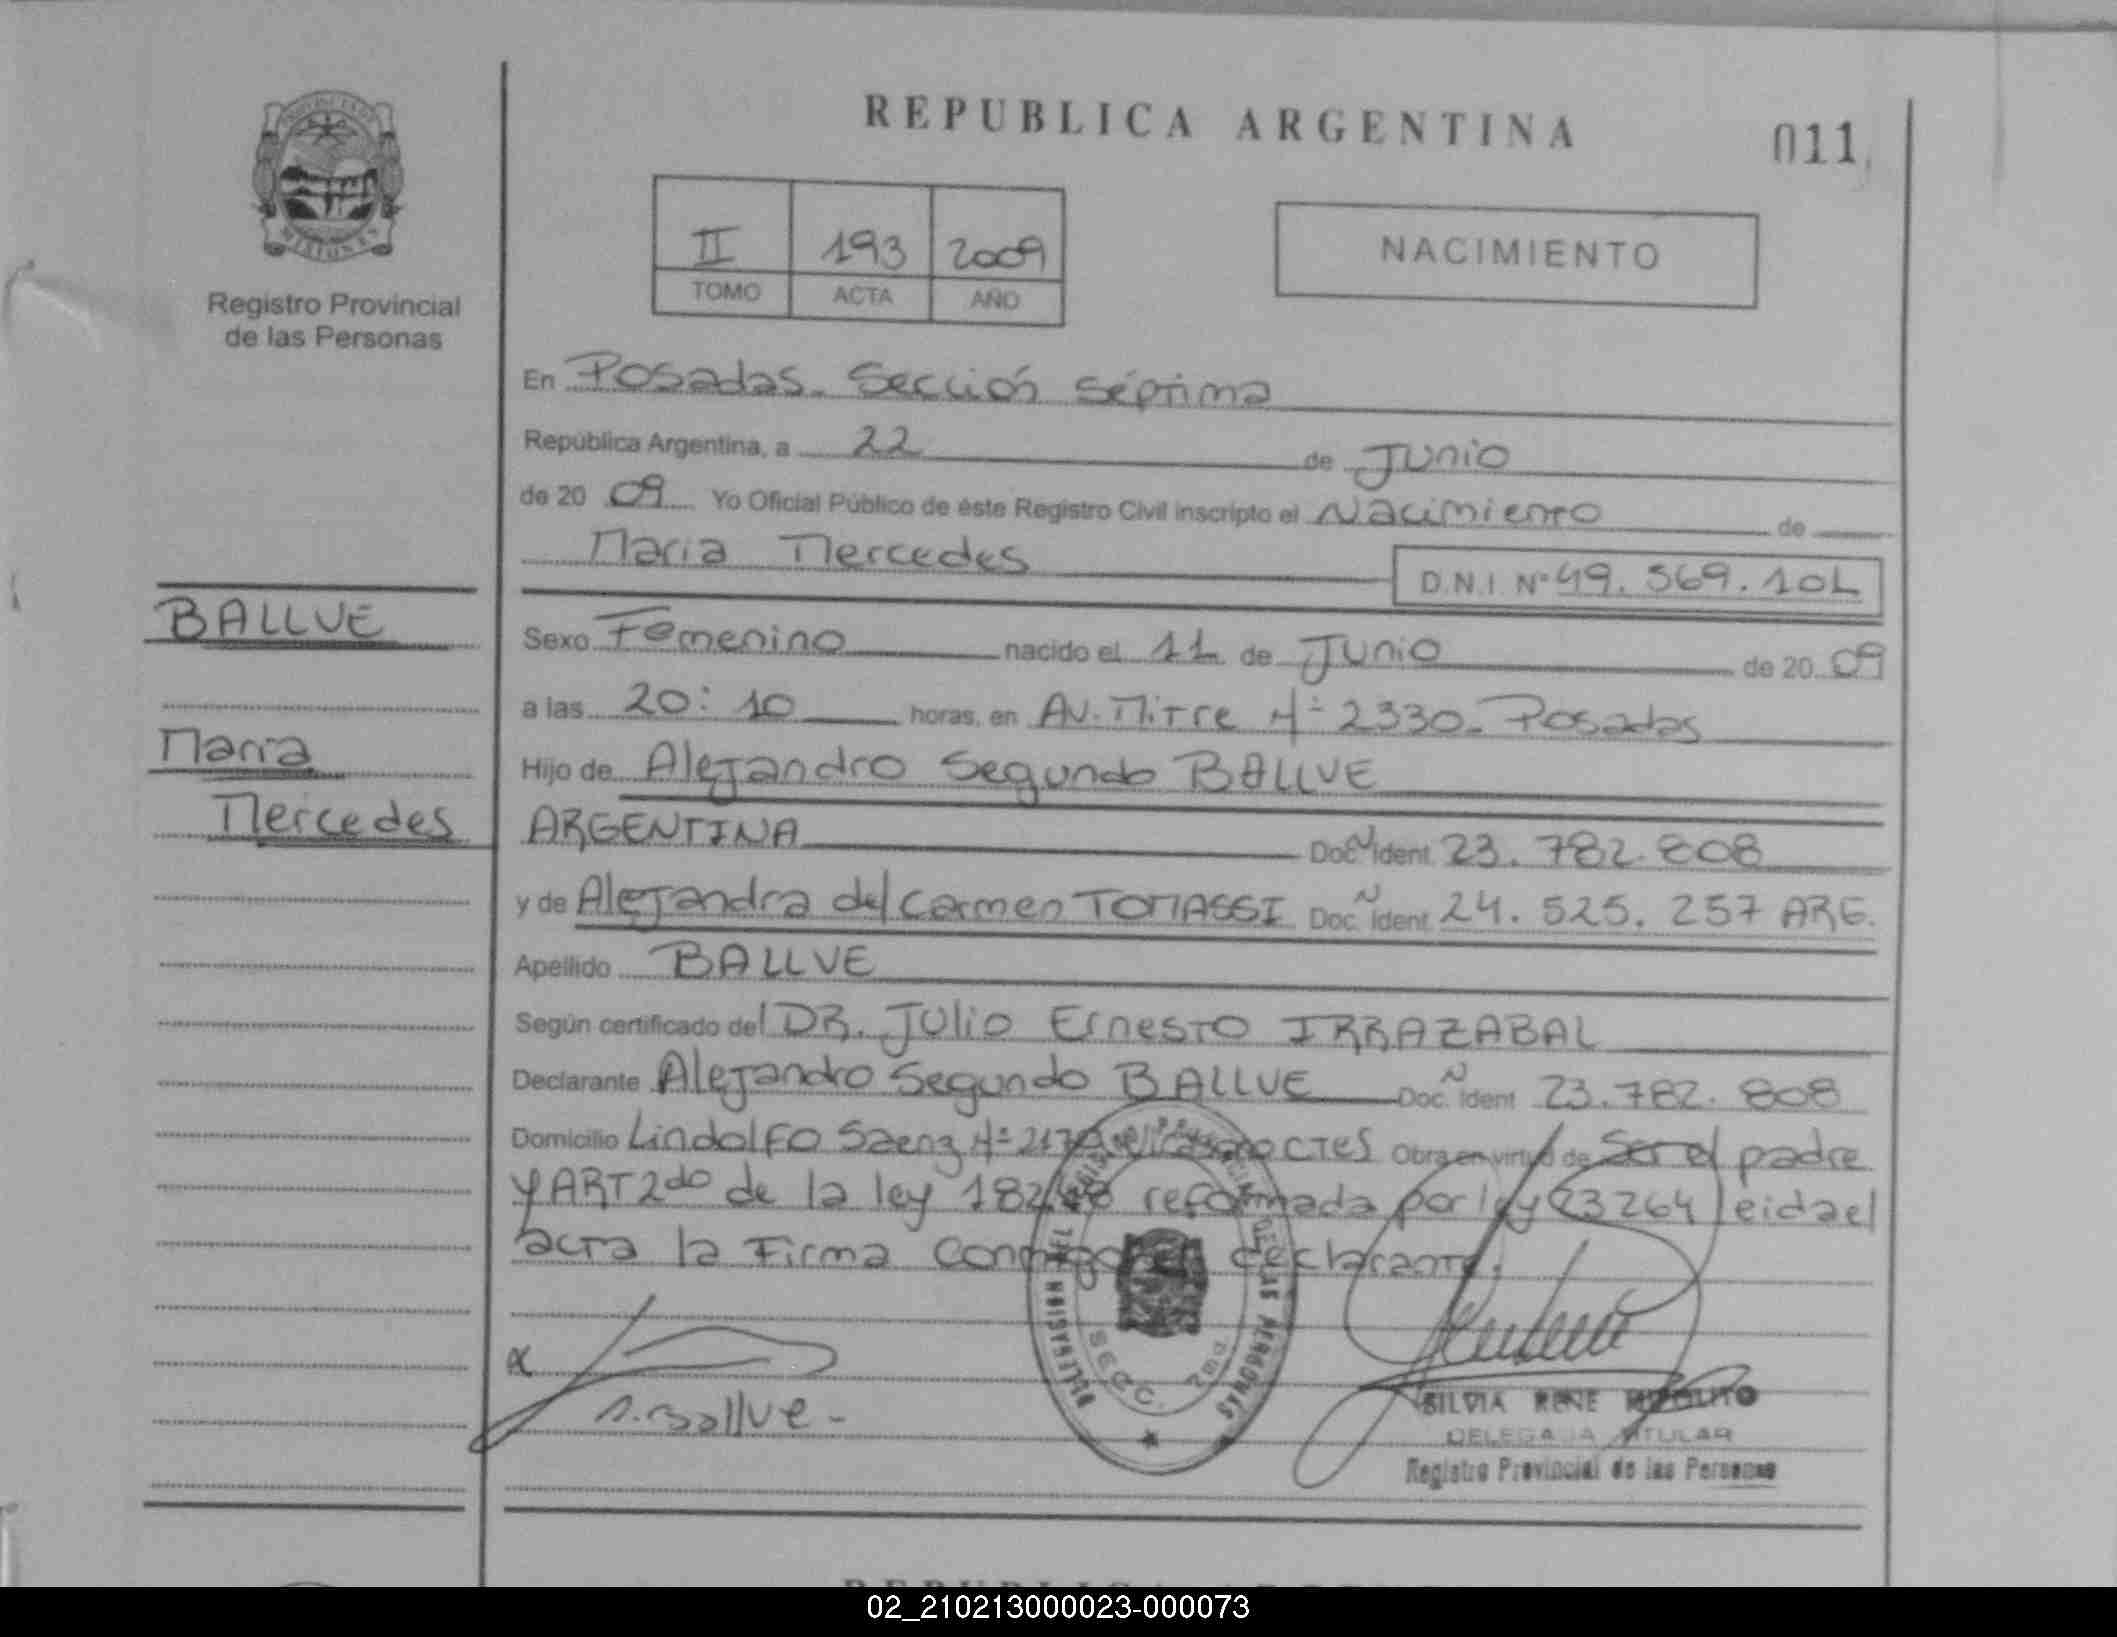 REPUBLICA ARGENTINA
011
II 193 2009
TOMO ACTA AÑO
NACIMIENTO
PROVINCIA DE
MISIONES
Registro Provincial
de las Personas
En Posadas. Sección séptima
República Argentina, a 22 de Junio
de 20 09 Yo Oficial Público de éste Registro Civil inscripto el Nacimiento de
Maria Mercedes
D.N.I. Nº 49.569.101
BALLVE
Maria
Mercedes
Sexo Femenino nacido el 11 de Junio de 20 09
a las 20:10 horas, en Av. Mitre Nº 2330. Posadas
Hijo de Alejandro Segundo BALLVE
ARGENTINA Doc. Ident. 23.782.808
y de Alejandra del Carmen TOMASSI Doc. Ident. 24.525.257 ARG.
Apellido BALLVE
Según certificado del DR. Julio Ernesto IRRAZABAL
Declarante Alejandro Segundo BALLVE Doc. Ident 23.782.808
Domicilio Lindolfo Saenz Nº CTES Obra en virtud de Ser el padre
Y ART 2do de la ley reformada por ley 23264 leida el
acta la Firma declarante.
A. Ballve -
SECC. 7ma.
DELEGACION DEL REGISTRO PROVINCIAL DE LAS PERSONAS
SILVIA RENE HIPOLITO
DELEGADA TITULAR
Registro Provincial de las Personas
02_210213000023-000073